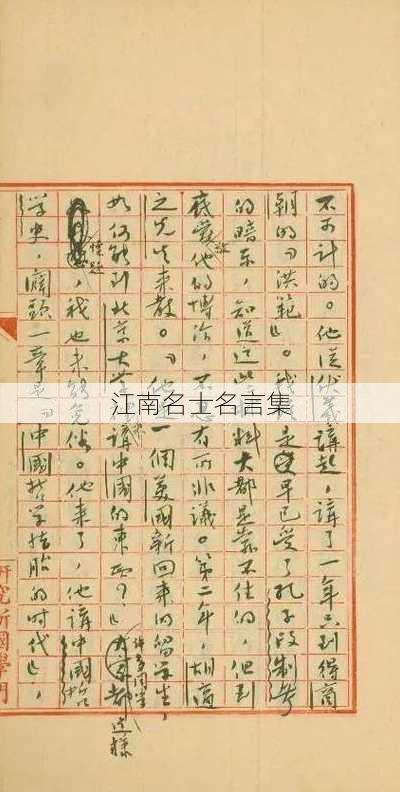 不可计的。他从伏羲讲起，讲了一年只到得商
朝的「洪範」。我于是早已受了孔子改制考
的暗示，知道这些材料大都是靠不住的，但到
底爱敬他的博洽，不忍有所非议。第二年，胡適
之先生来教。「他是一個美國新回来的留学生，
如何能到北京大学来講中國的東西？」許多同学都这样
懷疑，我也未能免俗。他来了，他講中國哲
学史，劈頭一章是「中國哲学结胎的时代」，
研究所國學門
江南名士名言集